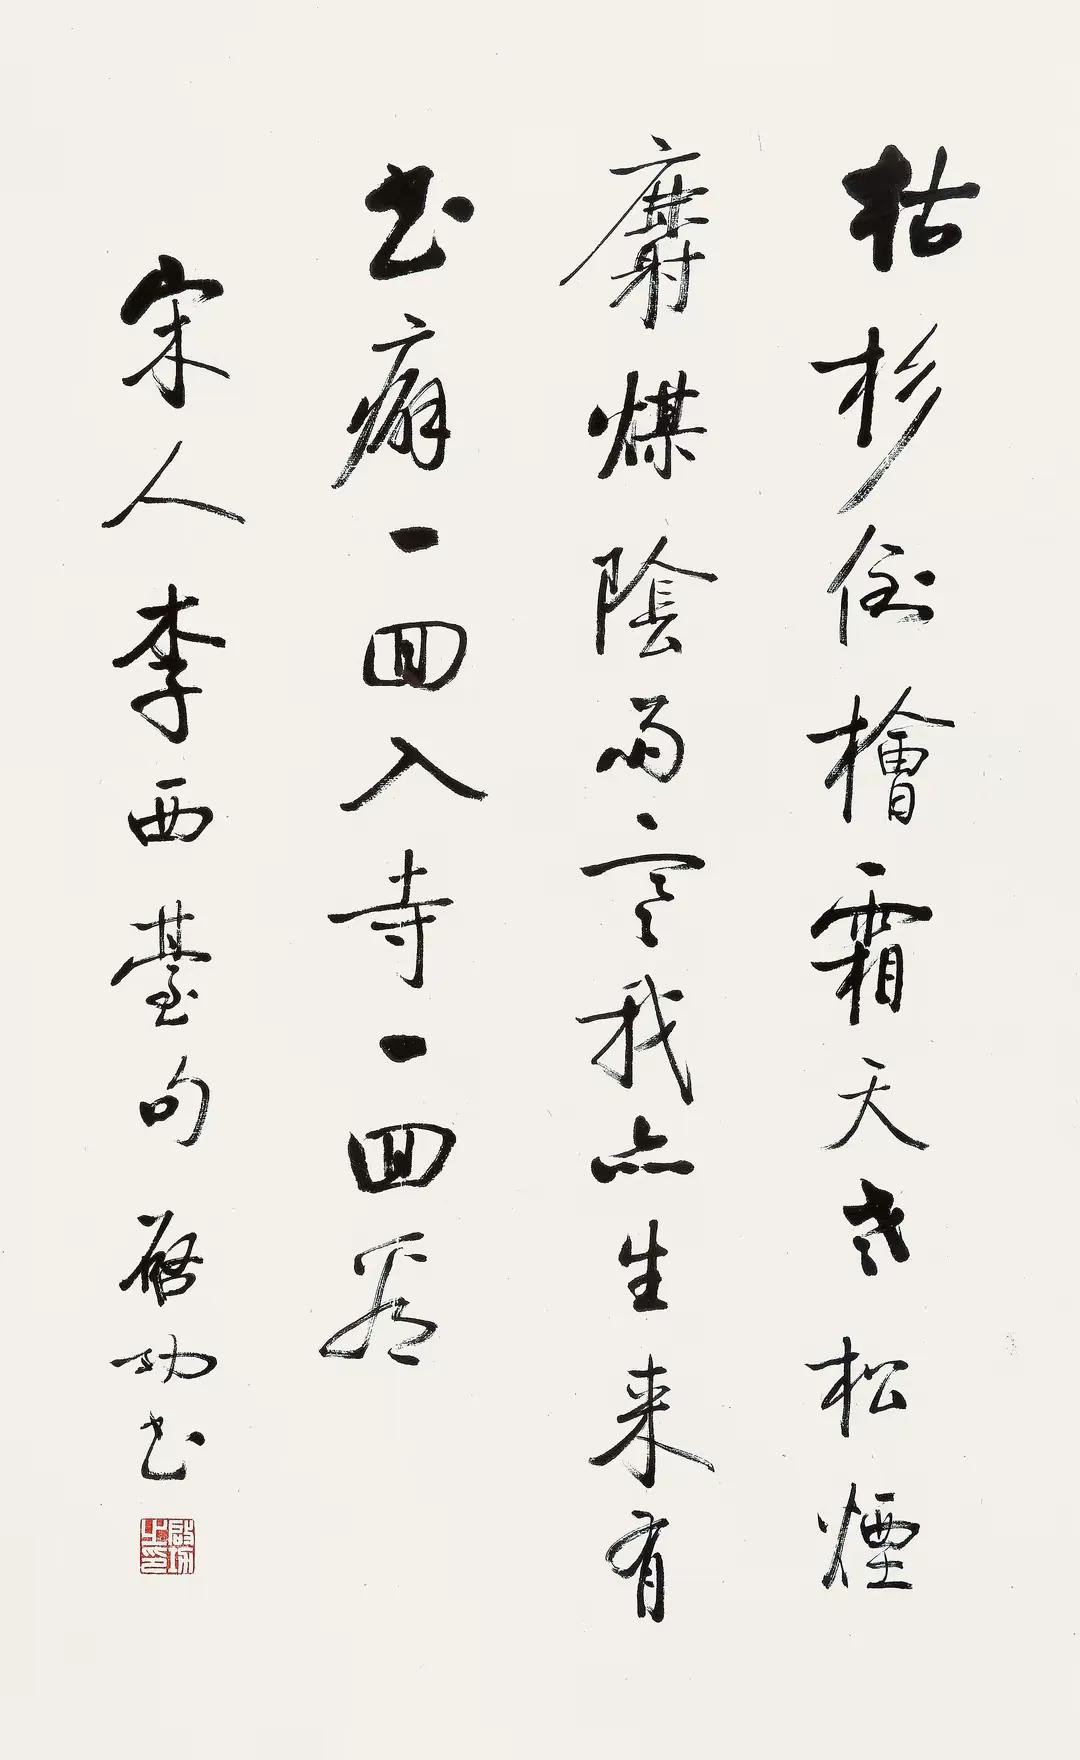 枯杉倒檜霜天老松煙
麝煤陰雨寒我亦生来有
书癖一回入寺一回看
宋人李西臺句 启功书
啟功之印